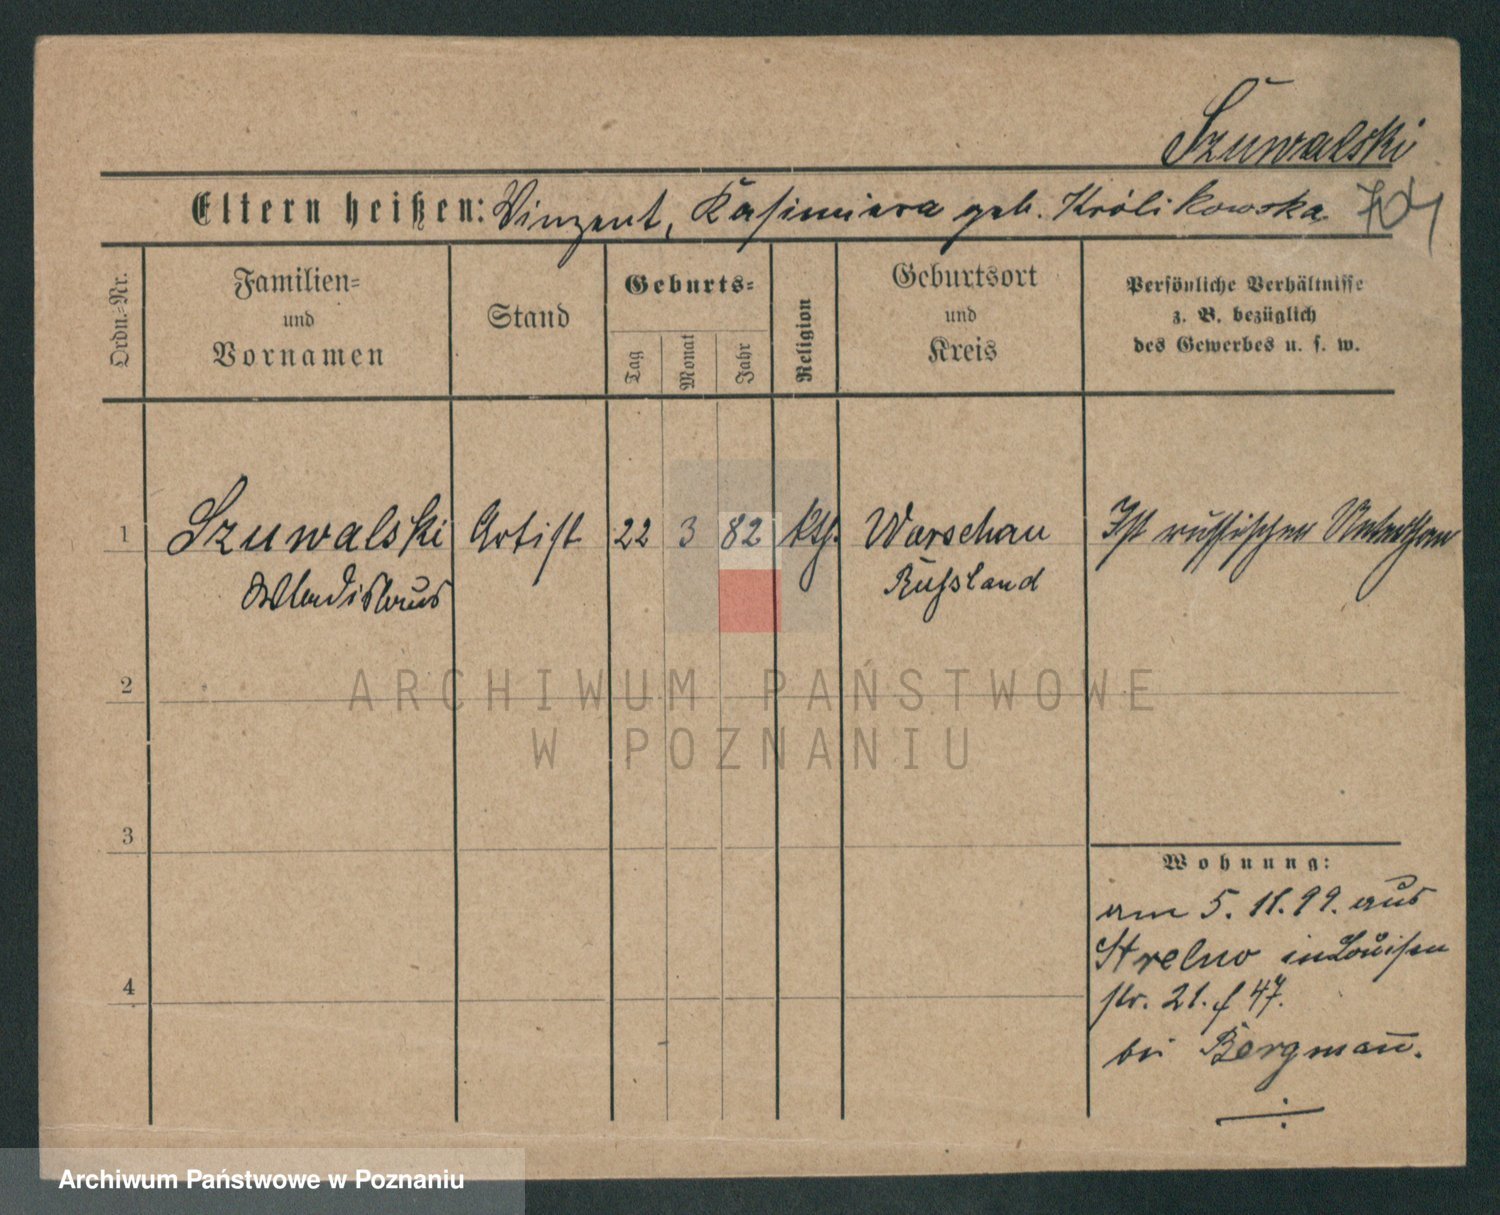 Szuwalski
Eltern heißen: Vinzent, Kasimiera geb. Królikowska
Ordn.-Nr.
Familien-
und
Vornamen
Stand
Geburts-
Tag
Monat
Jahr
Religion
Geburtsort
und
Kreis
Persönliche Verhältnisse
z. B. bezüglich
des Gewerbes u. s. w.
1 Szuwalski Artist 22 3 82 kth. Warschau Ist russischer Unterthan
Wladislaus Rußland
2
ARCHIWUM PAŃSTWOWE
W POZNANIU
3
Wohnung:
am 5. 11. 99. aus
Strelno in Louisen
4
str. 21. f 47.
bei Bergmañ.
Archiwum Państwowe w Poznaniu